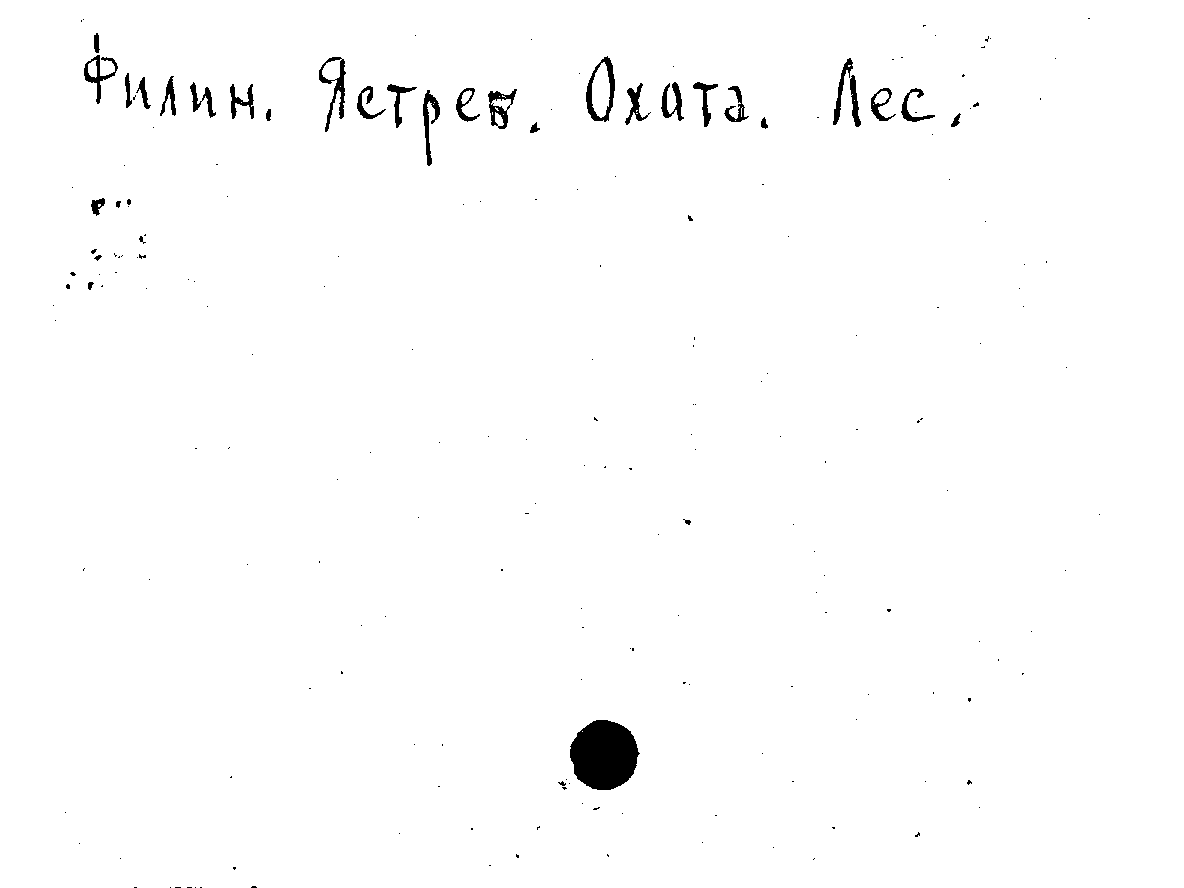 Филин. Ястреб. Охата. Лес.